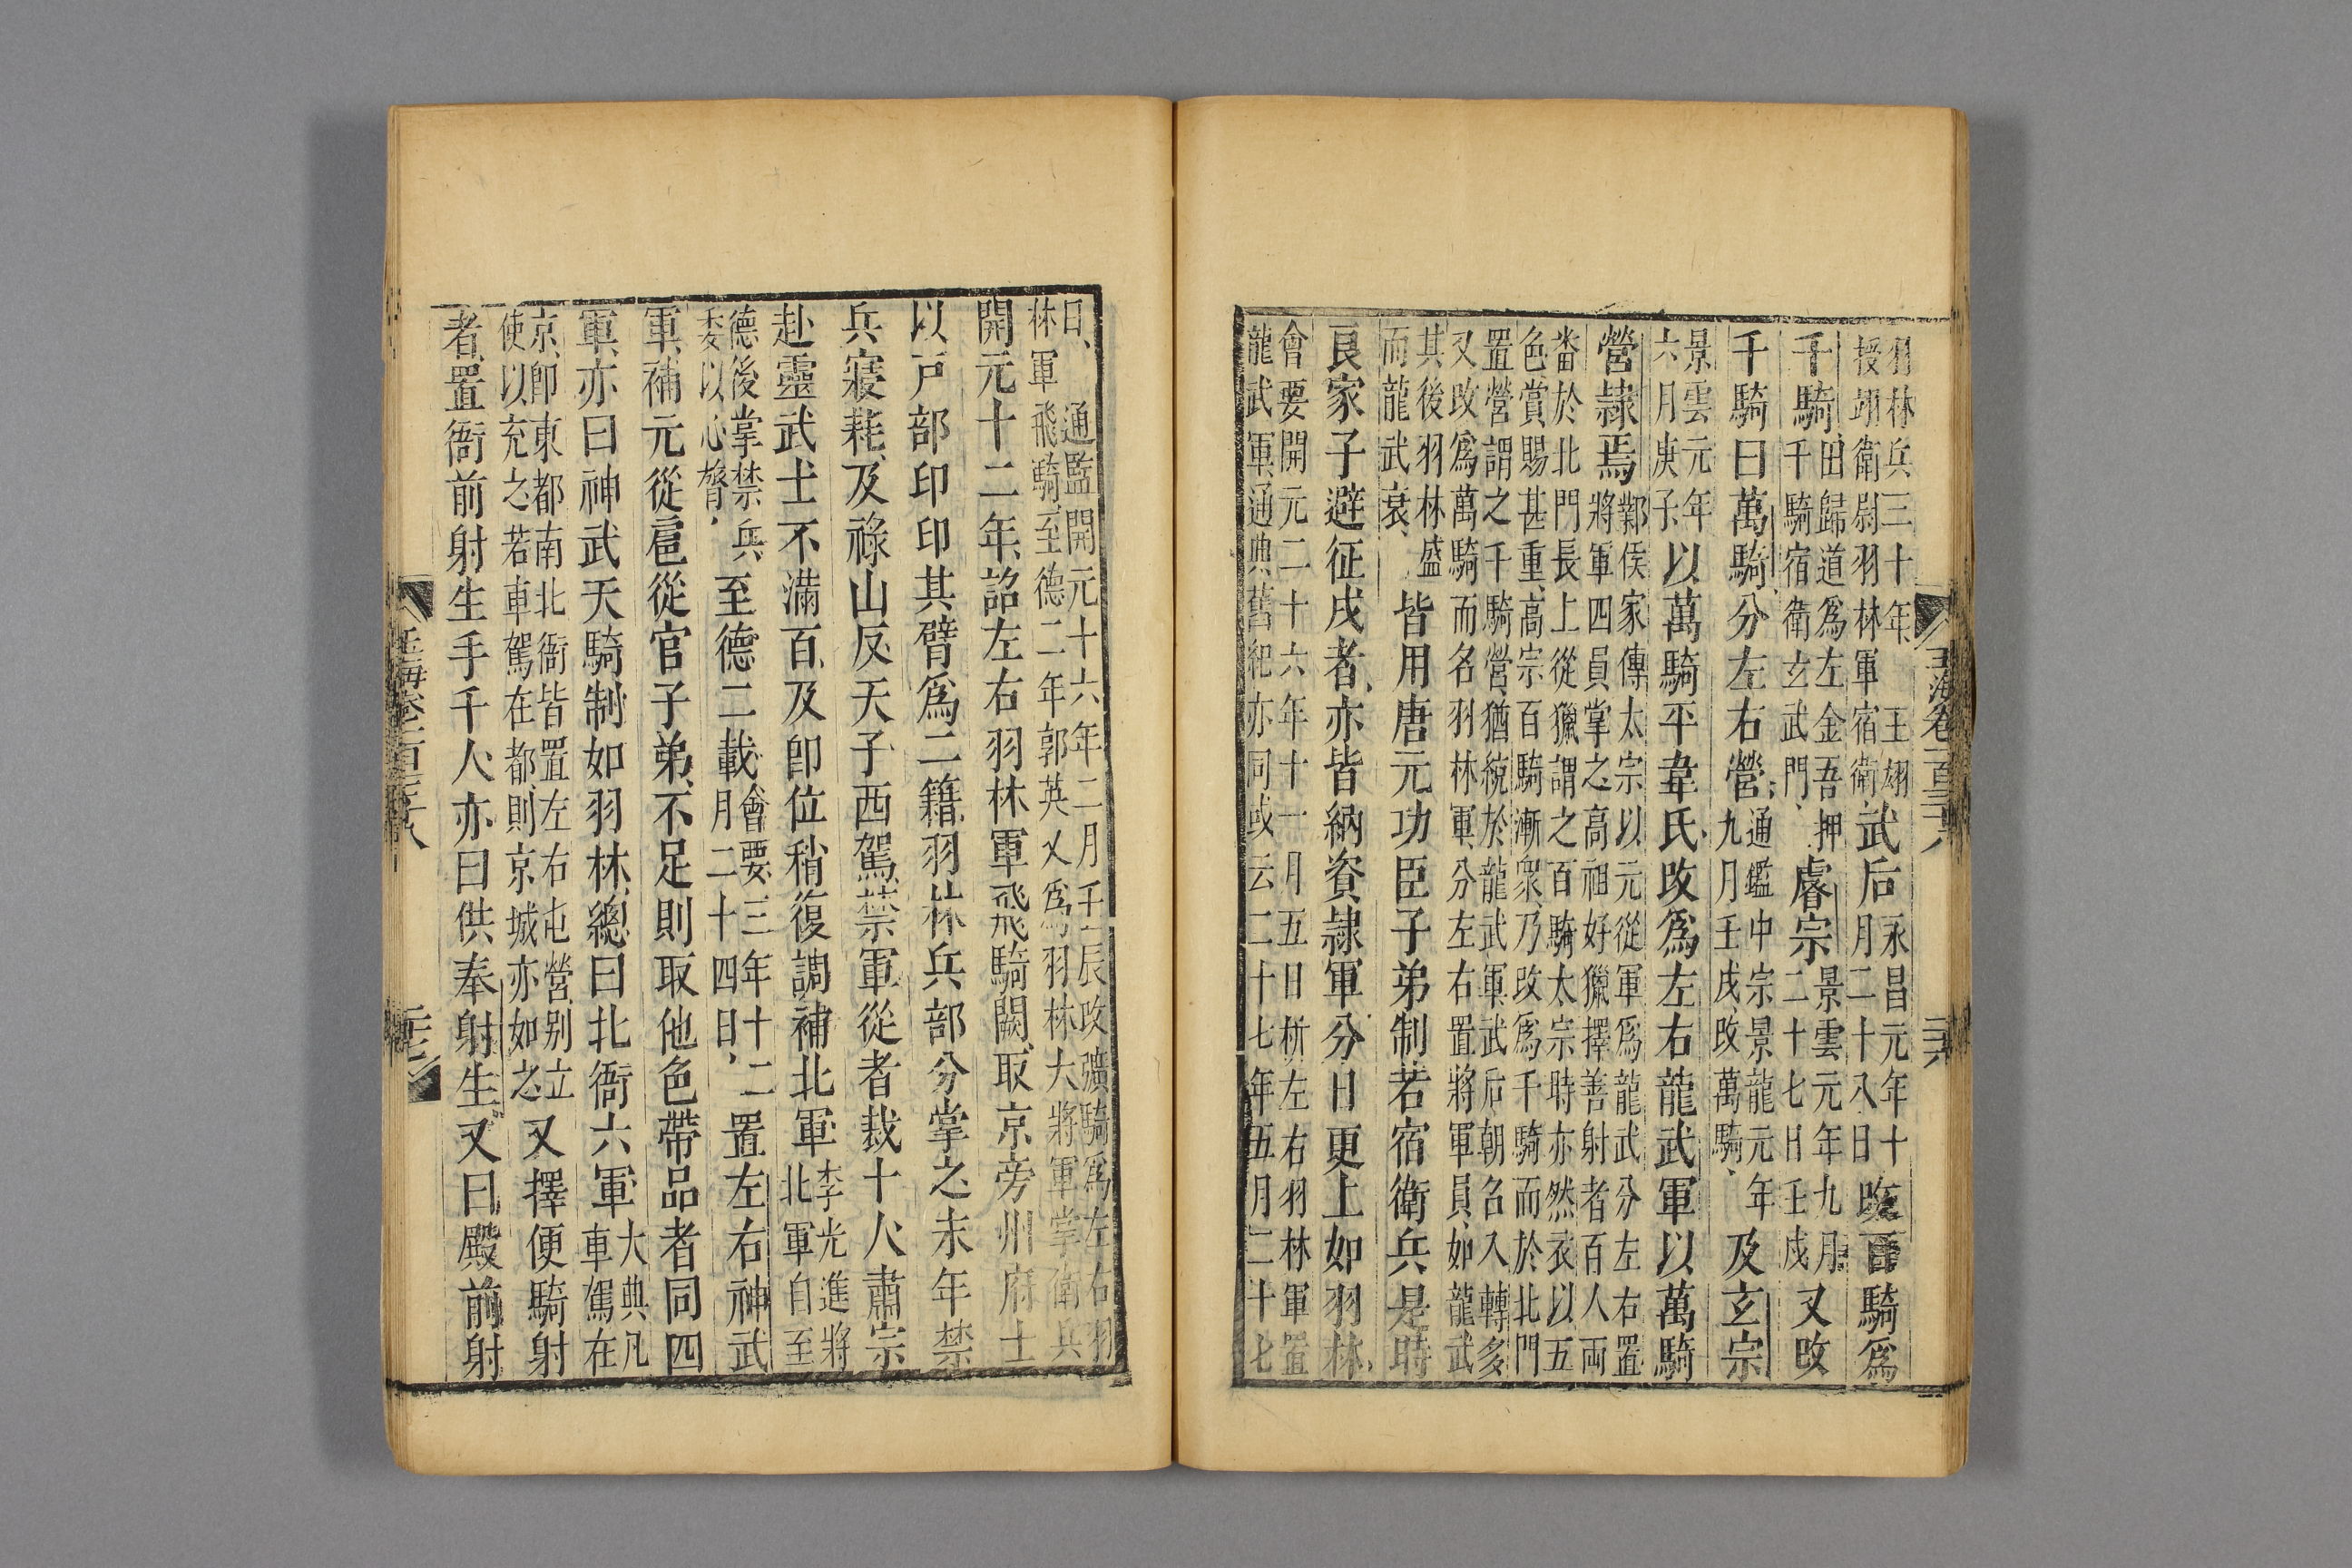 玉海卷一百三十八
二十六
羽林兵三十年 王翃
授翊衛尉羽林軍宿衛
武后
永昌元年十
月二十八日
改百騎爲
千騎
田歸道爲左金吾押
千騎宿衛玄武門
睿宗
景雲元年九月
二十七日壬戌
又改
千騎曰萬騎分左右營
通鑑中宗景龍元年
九月壬戌改萬騎
及玄宗
景雲元年
六月庚子
以萬騎平韋氏改爲左右龍武軍以萬騎
營隸焉
鄴侯家傳太宗以元從軍爲龍武分左右置
將軍四員掌之高祖好獵擇善射者百人兩
番於北門長上從獵謂之百騎太宗時亦然衣以五
色賞賜甚重高宗百騎漸衆乃改爲千騎而於北門
置營謂之千騎營猶統於龍武軍武后朝召入轉多
又改爲萬騎而名羽林軍分左右置將軍員如龍武
其後羽林盛
而龍武衰
皆用唐元功臣子弟制若宿衛兵是時
良家子避征戍者亦皆納資隸軍分日更上如羽林
會要開元二十六年十一月五日析左右羽林軍置
龍武軍通典舊紀亦同或云二十七年五月二十七
日 通監開元十六年二月壬辰改彍騎爲左右羽
林軍飛騎至德二年郭英乂爲羽林大將軍掌衛兵
開元十二年詔左右羽林軍飛騎闕取京旁州府士
以戸部印印其臂爲二籍羽林兵部分掌之末年禁
兵寖耗及祿山反天子西駕禁軍從者裁十人肅宗
赴靈武士不滿百及卽位稍復調補北軍
李光進將
北軍自至
德後掌禁兵
委以心膂
至德二載
會要三年十二
月二十四日
置左右神武
軍補元從扈從官子弟不足則取他色帶品者同四
軍亦曰神武天騎制如羽林總曰北衙六軍
大典凡
車駕在
京卽東都南北衙皆置左右屯營别立
使以充之若車駕在都則京城亦如之
又擇便騎射
者置衙前射生手千人亦曰供奉射生又曰殿前射
玉海卷一百三十八
二十七